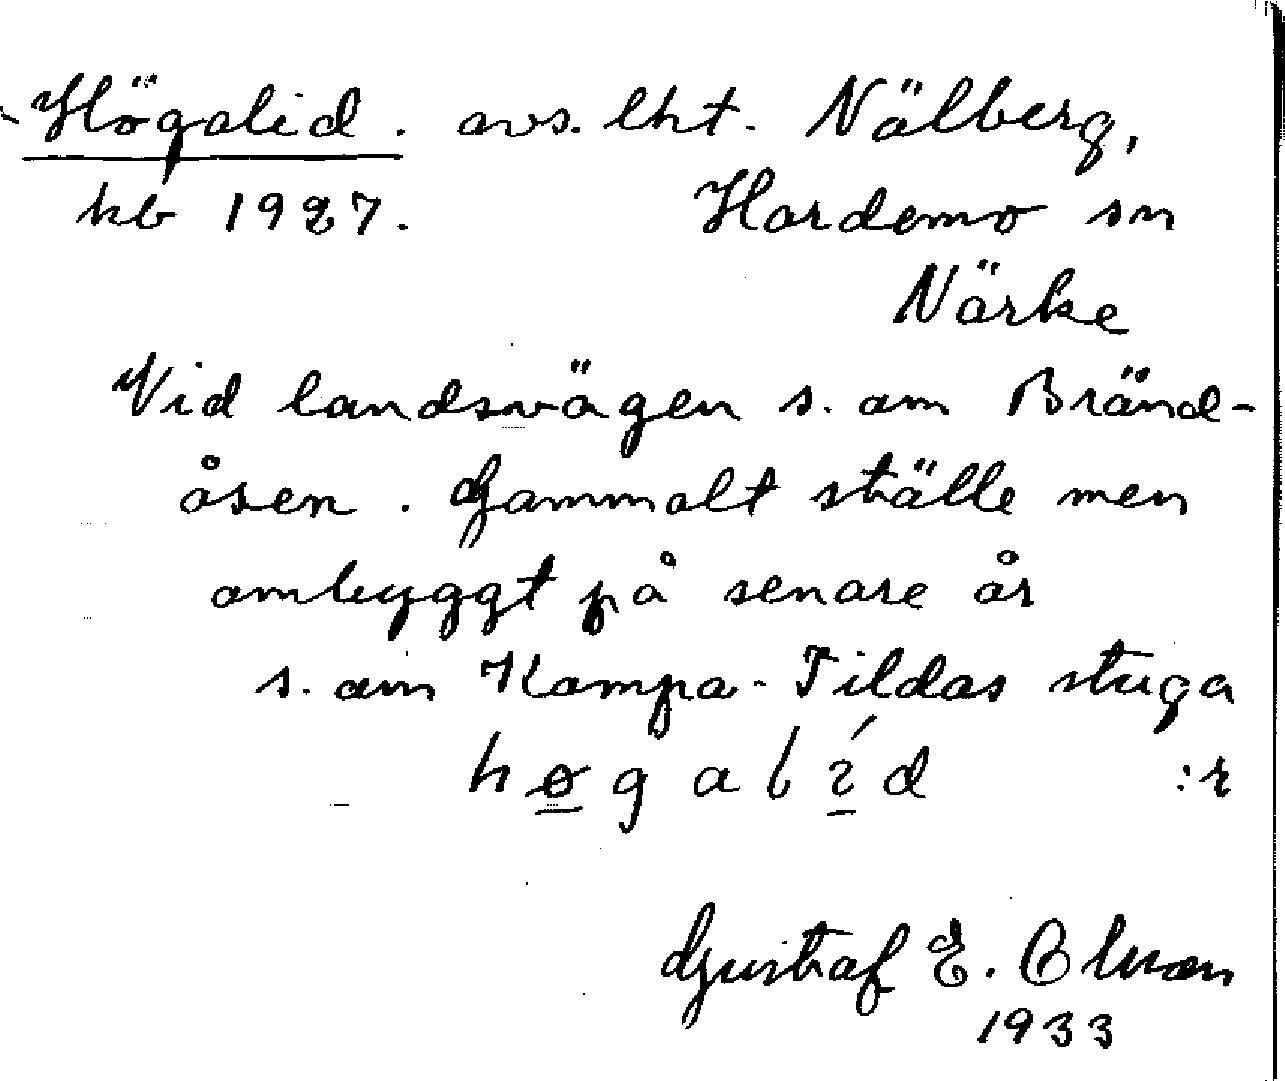 Högalid. avs. lht. Nälberg,
kb 1927. Hardemo sn
Närke
Vid landsvägen s. om Bränd-
åsen. Gammalt ställe men
ombyggt på senare år
s. om Kampa-Tildas stuga
høgalíd :r
Gustaf E. Olsson
1933